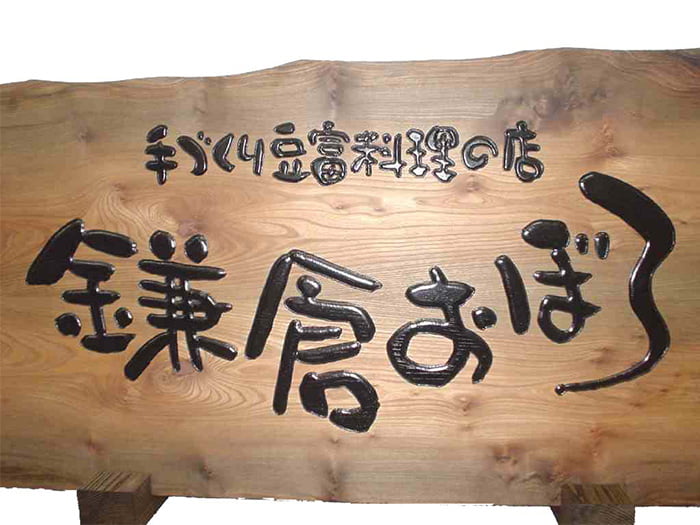 手づくり豆富料理の店
鎌倉おぼろ